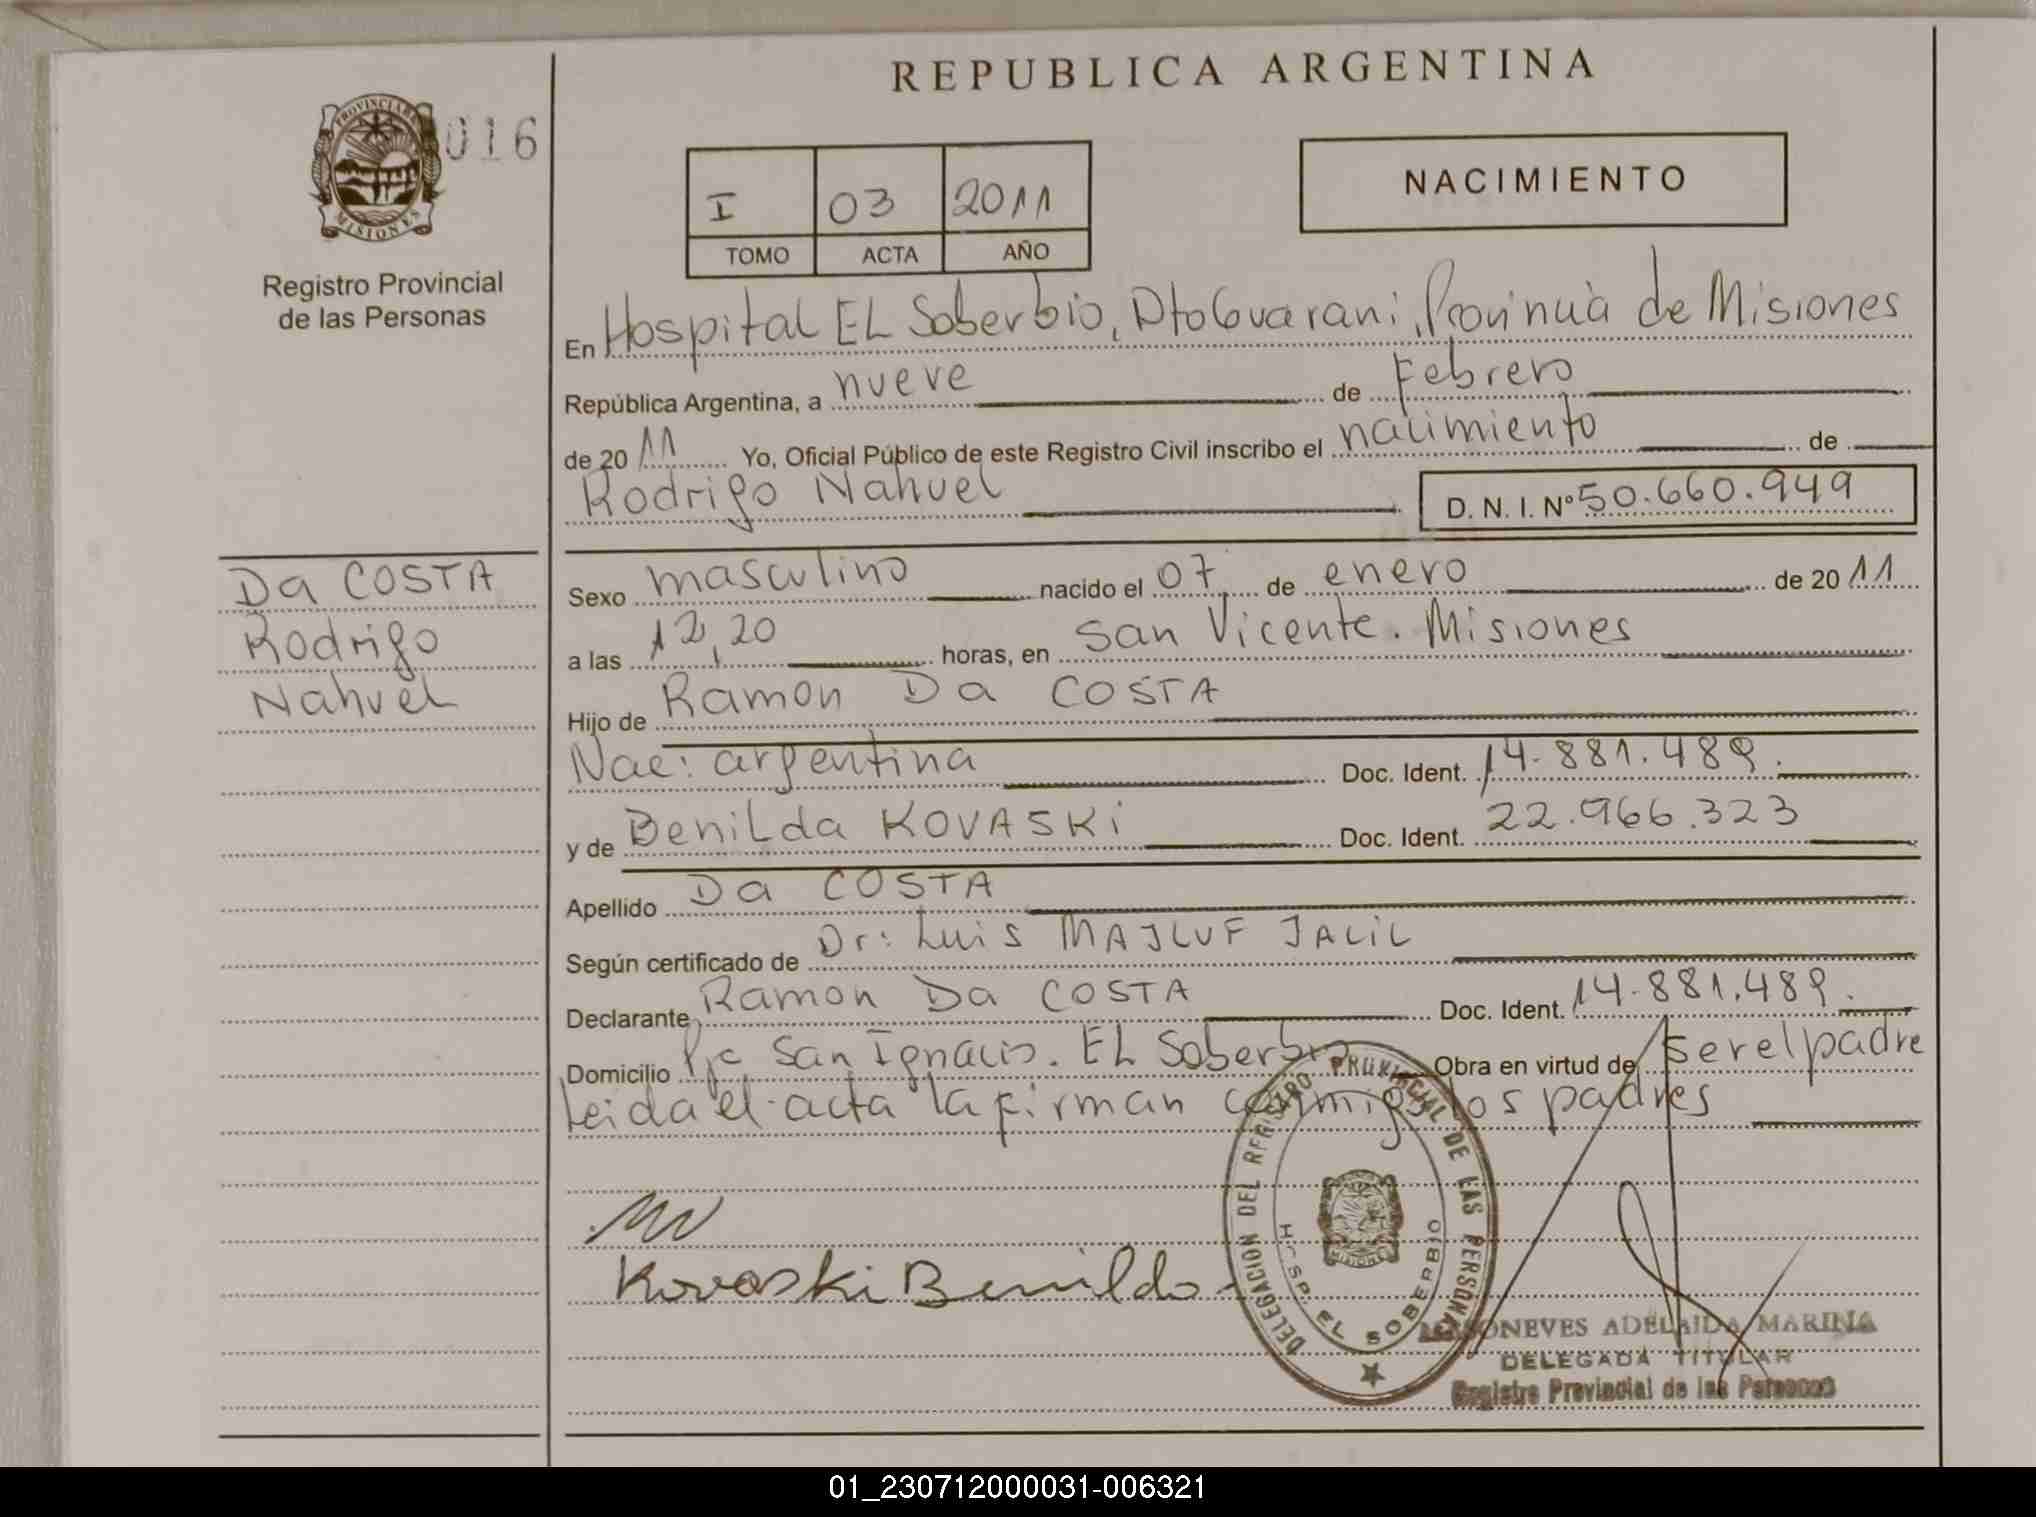 REPUBLICA ARGENTINA
PROVINCIA DE
MISIONES
016
Registro Provincial
de las Personas
I 03 2011
TOMO ACTA AÑO
NACIMIENTO
En Hospital EL Soberbio, Dto Guarani, Provincia de Misiones
República Argentina, a nueve de Febrero
de 2011 Yo, Oficial Público de este Registro Civil inscribo el nacimiento de
Rodrigo Nahuel D. N. I. Nº 50.660.949
Da COSTA
Rodrigo
Nahuel
Sexo masculino nacido el 07 de enero de 2011
a las 12,20 horas, en San Vicente. Misiones
Hijo de Ramon Da COSTA
Nac: argentina Doc. Ident. 14.881.489.
y de Benilda KOVASKi Doc. Ident. 22.966.323
Apellido Da COSTA
Según certificado de Dr: Luis MAJLUF JALIL
Declarante Ramon Da COSTA Doc. Ident. 14.881.489.
Domicilio Pje San Ignacio. EL Soberbio Obra en virtud de ser el padre
Leida el acta la firman conmigo los padres
Kovaski Benilda
DELEGACION DEL REGISTRO PROVINCIAL DE LAS PERSONAS
HOSP. EL SOBERBIO
MISIONES
NEVES ADELAIDA MARINA
DELEGADA TITULAR
Registro Provincial de las Personas
01_230712000031-006321